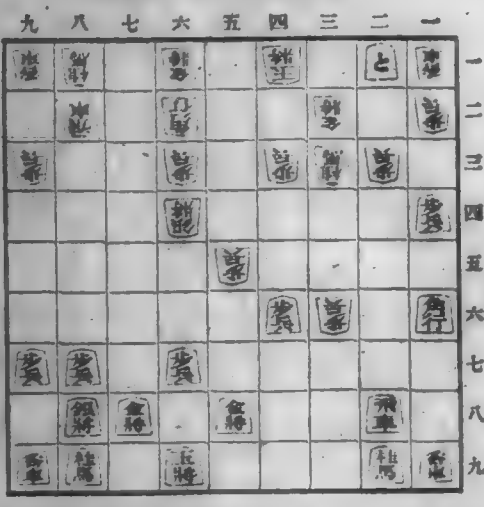 九 八 七 六 五 四 三 二 一
香車 桂馬 金將 王將 と 香車 一
飛車 角行 金將 歩兵 二
歩兵 歩兵 歩兵 桂馬 歩兵 三
銀將 歩兵 四
歩兵 五
歩兵 歩兵 角行 六
歩兵 歩兵 歩兵 七
銀將 金將 金將 飛車 八
香車 桂馬 王將 桂馬 香車 九